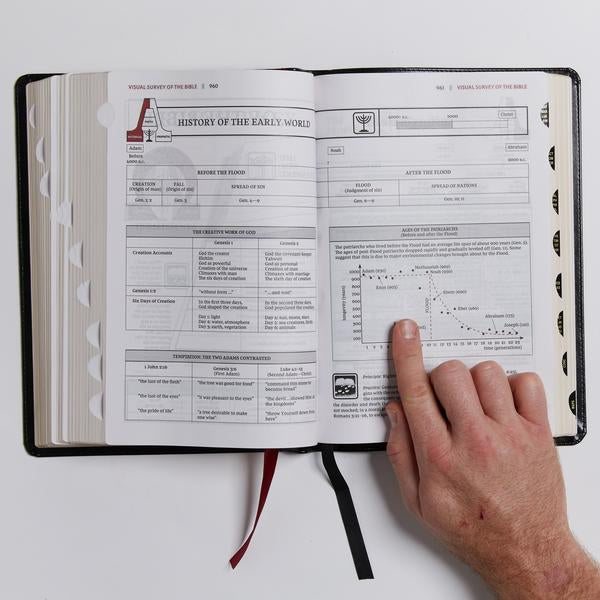 VISUAL SURVEY OF THE BIBLE || 960
HISTORY OF THE EARLY WORLD
Adam
Before
4000 B.C.
BEFORE THE FLOOD
CREATION
(Origin of man)
FALL
(Origin of sin)
SPREAD OF SIN
Gen. 1; 2
Gen. 3
Gen. 4—9
THE CREATIVE WORK OF GOD
Genesis 1
Genesis 2
Creation Accounts
God the creator
Elohim
God as powerful
Creation of the universe
Climaxes with man
The six days of creation
God the covenant-keeper
Yahweh
God as personal
Creation of man
Climaxes with marriage
The sixth day of creation
Genesis 1:2
"without form ..."
"...and void"
Six Days of Creation
In the first three days,
God shaped the creation
In the second three days,
God populated the creation
Day 1: light
Day 2: water, atmosphere
Day 3: earth, vegetation
Day 4: sun, moon, stars
Day 5: sea creatures, birds
Day 6: animals
TEMPTATION: THE TWO ADAMS CONTRASTED
1 John 2:16
Genesis 3:6
(First Adam)
Luke 4:1–13
(Second Adam—Christ)
"the lust of the flesh"
"the tree was good for food"
"command this stone to
become bread"
"the lust of the eyes"
"it was pleasant to the eyes"
"the devil...showed Him all
the kingdoms"
"the pride of life"
"a tree desirable to make
one wise"
"throw Yourself down from
here"
961 || VISUAL SURVEY OF THE BIBLE
4000 B.C.
Christ
Noah
Abraham
AFTER THE FLOOD
FLOOD
(Judgment of sin)
SPREAD OF NATIONS
Gen. 6—9
Gen. 10; 11
AGES OF THE PATRIARCHS
(Before and after the Flood)
The patriarchs who lived before the Flood had an average life span of about 900 years (Gen. 5).
The ages of post-Flood patriarchs dropped rapidly and gradually leveled off (Gen. 11). Some
suggest that this is due to major environmental changes brought about by the Flood.
longevity (years)
1000
900
800
700
600
500
400
300
200
100
Adam (930)
Enos (905)
Methuselah (969)
Noah (950)
FLOOD
Shem (600)
Eber (464)
Abraham (175)
Joseph (110)
time (generations)
Principle:
Practice:
the disorder and death
not mocked; is a moral
Romans 3:21–26